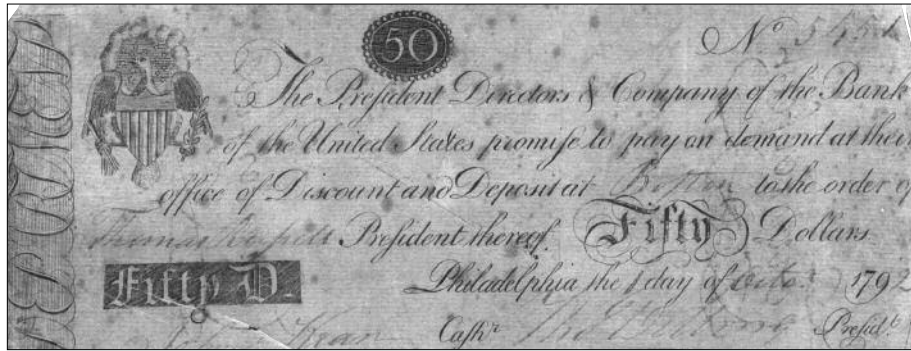 50
Nº
The President Directors & Company of the Bank
of the United States promise to pay on demand at their
office of Discount and Deposit at Boston to the order of
Thomas Russell President thereof. Fifty Dollars
Fifty D.
Philadelphia the 1 day of 1792
Kean Cashr Presidt